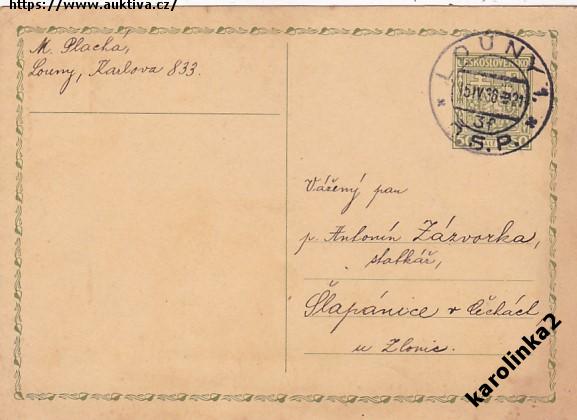 https://www.auktiva.cz/
M. Placha,
Louny, Karlova 833.
ČESKOSLOVENSKO
LOUNY 1.
15.IV.36
3f
* S.P. *
50 50
Vážený pan
p. Antonín Zázvorka,
statkář,
Šlapánice v Čechách
u Zlonic.
karolinka2